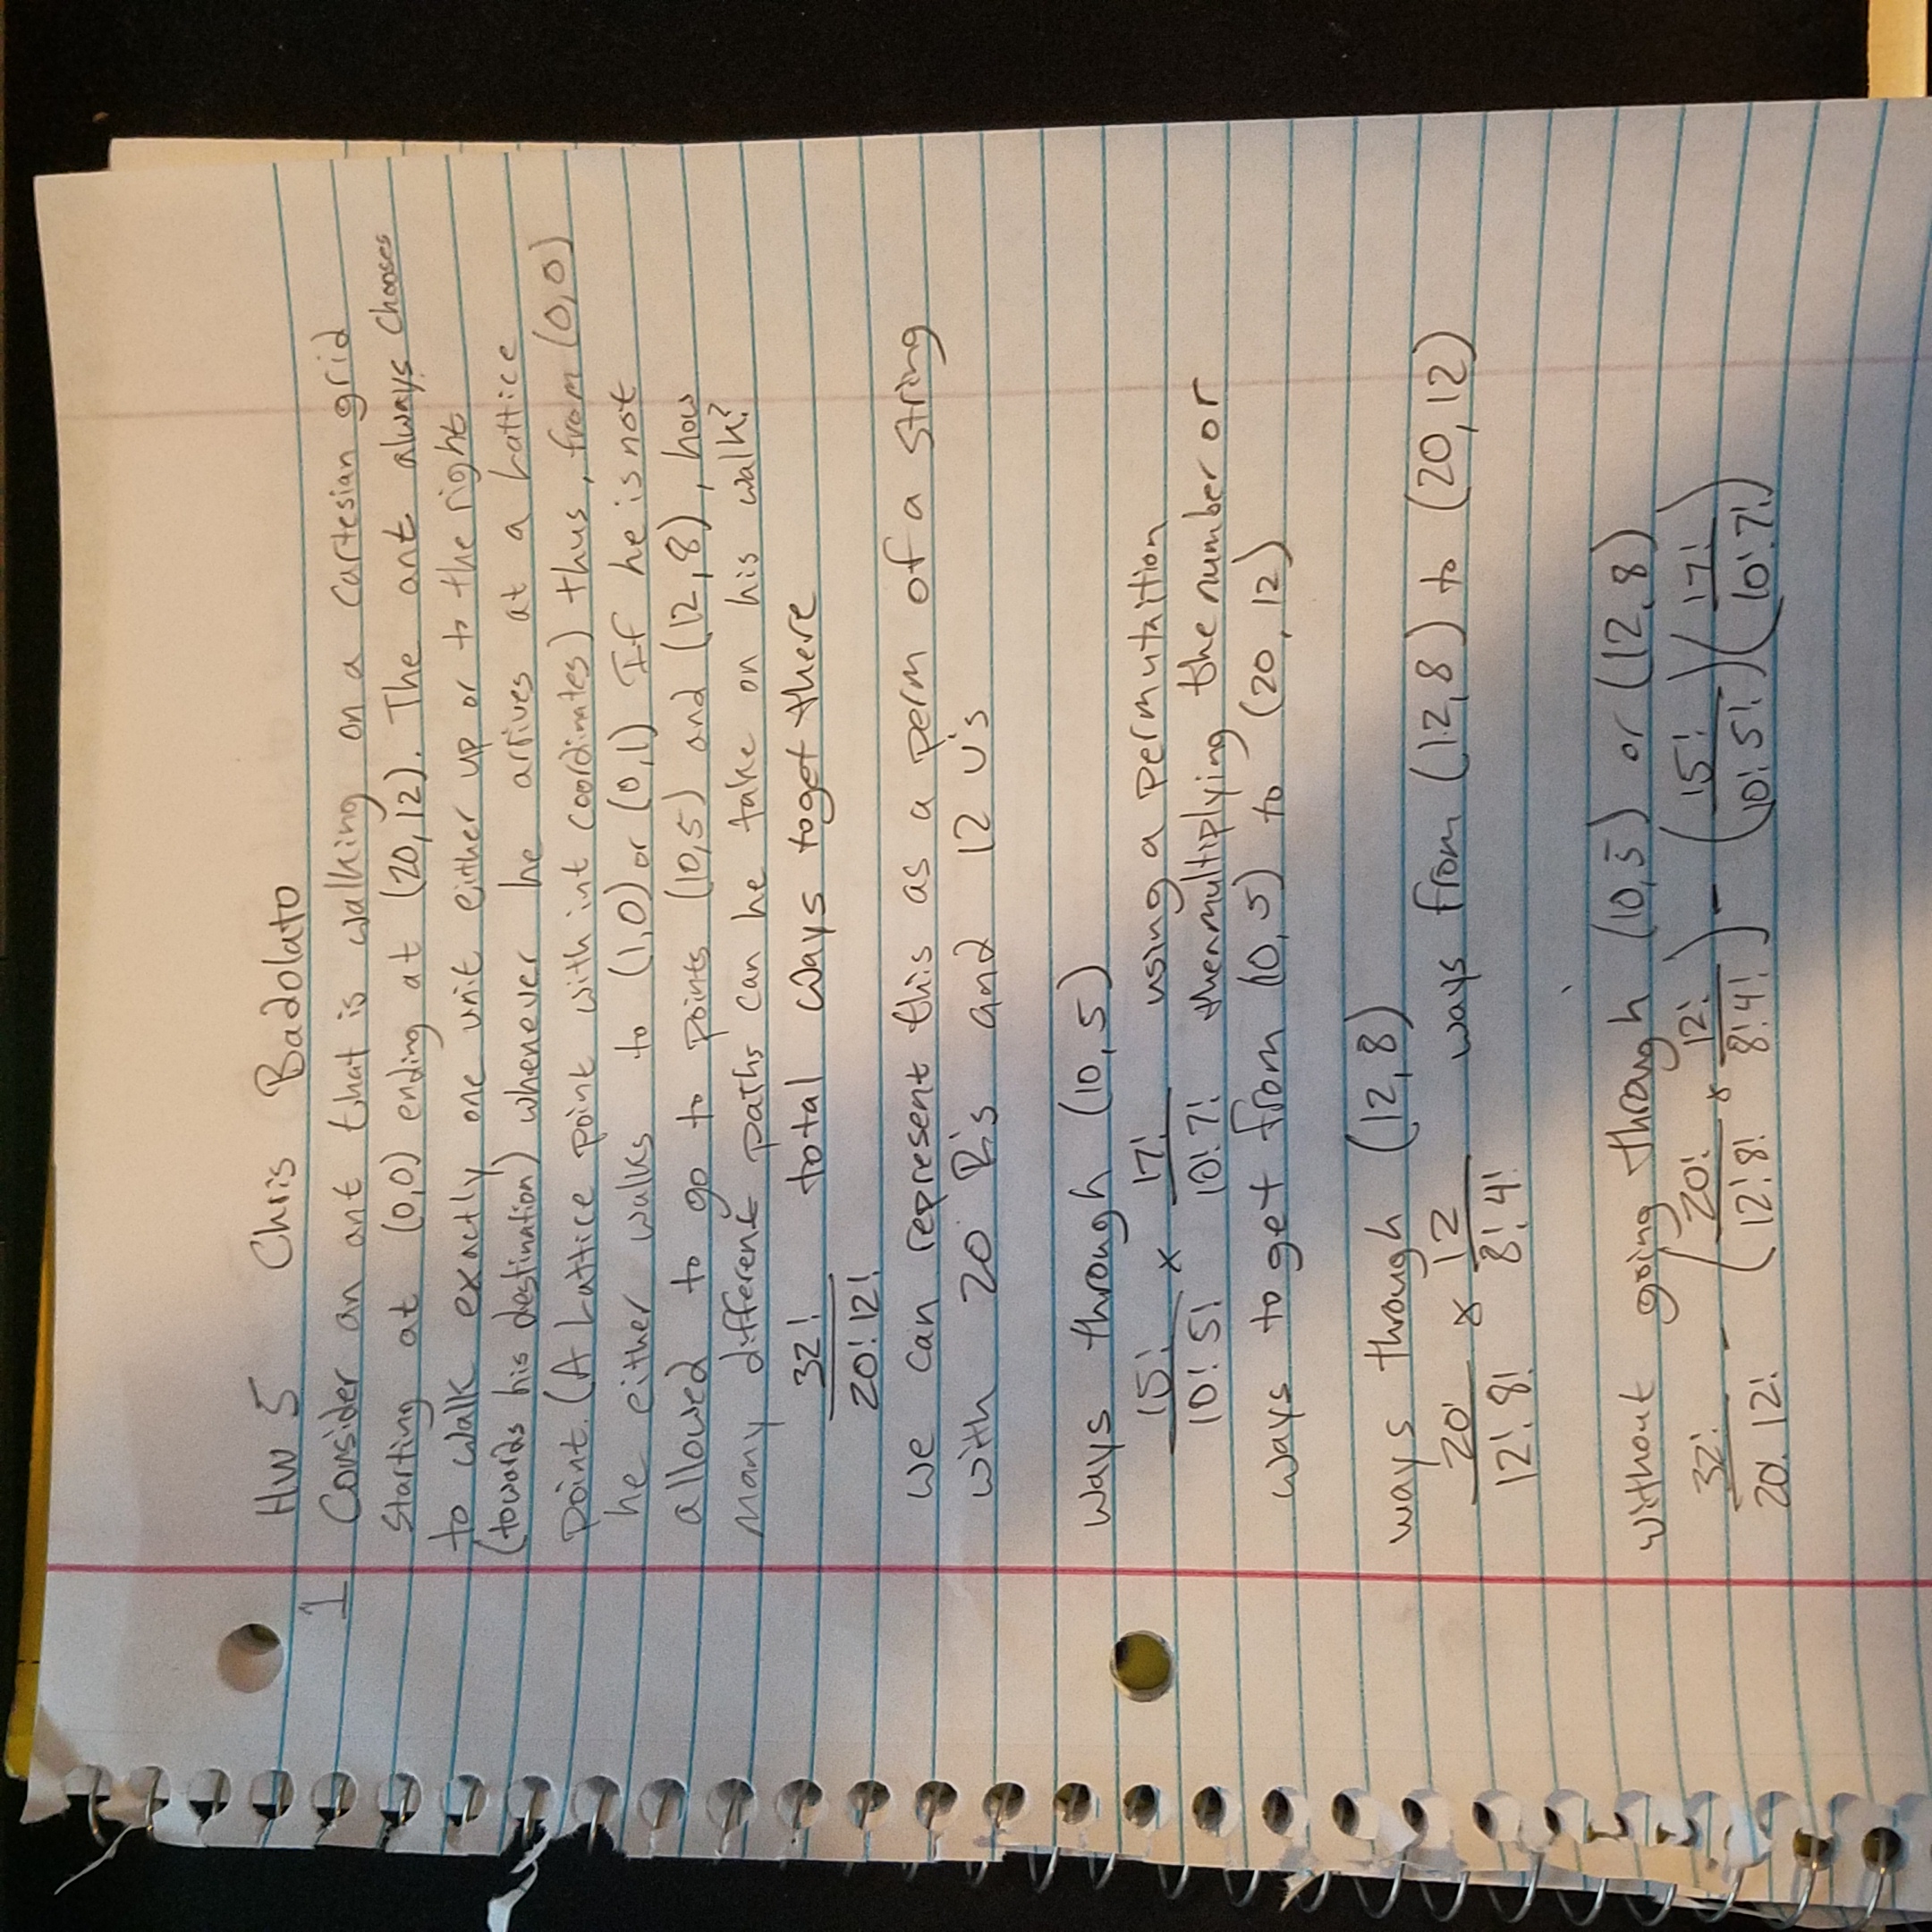 HW 5 Chris Badolato
1 Consider an ant that is walking on a Cartesian grid
starting at (0,0) ending at (20,12). The ant always chooses
to walk exactly one unit either up or to the right
(towards his destination) whenever he arrives at a Lattice
point. (A Lattice point with int coordinates) thus, from (0,0)
he either walks to (1,0) or (0,1) If he is not
allowed to go to points (10,5) and (12,8), how
many different paths can he take on his walk?
32! total ways to get there
20! 12!
we can represent this as a perm of a string
with 20 R's and 12 U's
ways through (10,5)
15! × 17! using a permutaition
10! 5! 10! 7! then multiplying the number or
ways to get from (10,5) to (20,12)
ways through (12,8)
20! × 12 ways from (12,8) to (20,12)
12! 8! 8! 4!
without going through (10,5) or (12,8)
32! - (20! × 12!) - (15!)(17!)
20! 12! 12! 8! 8! 4! 10! 5! 10! 7!